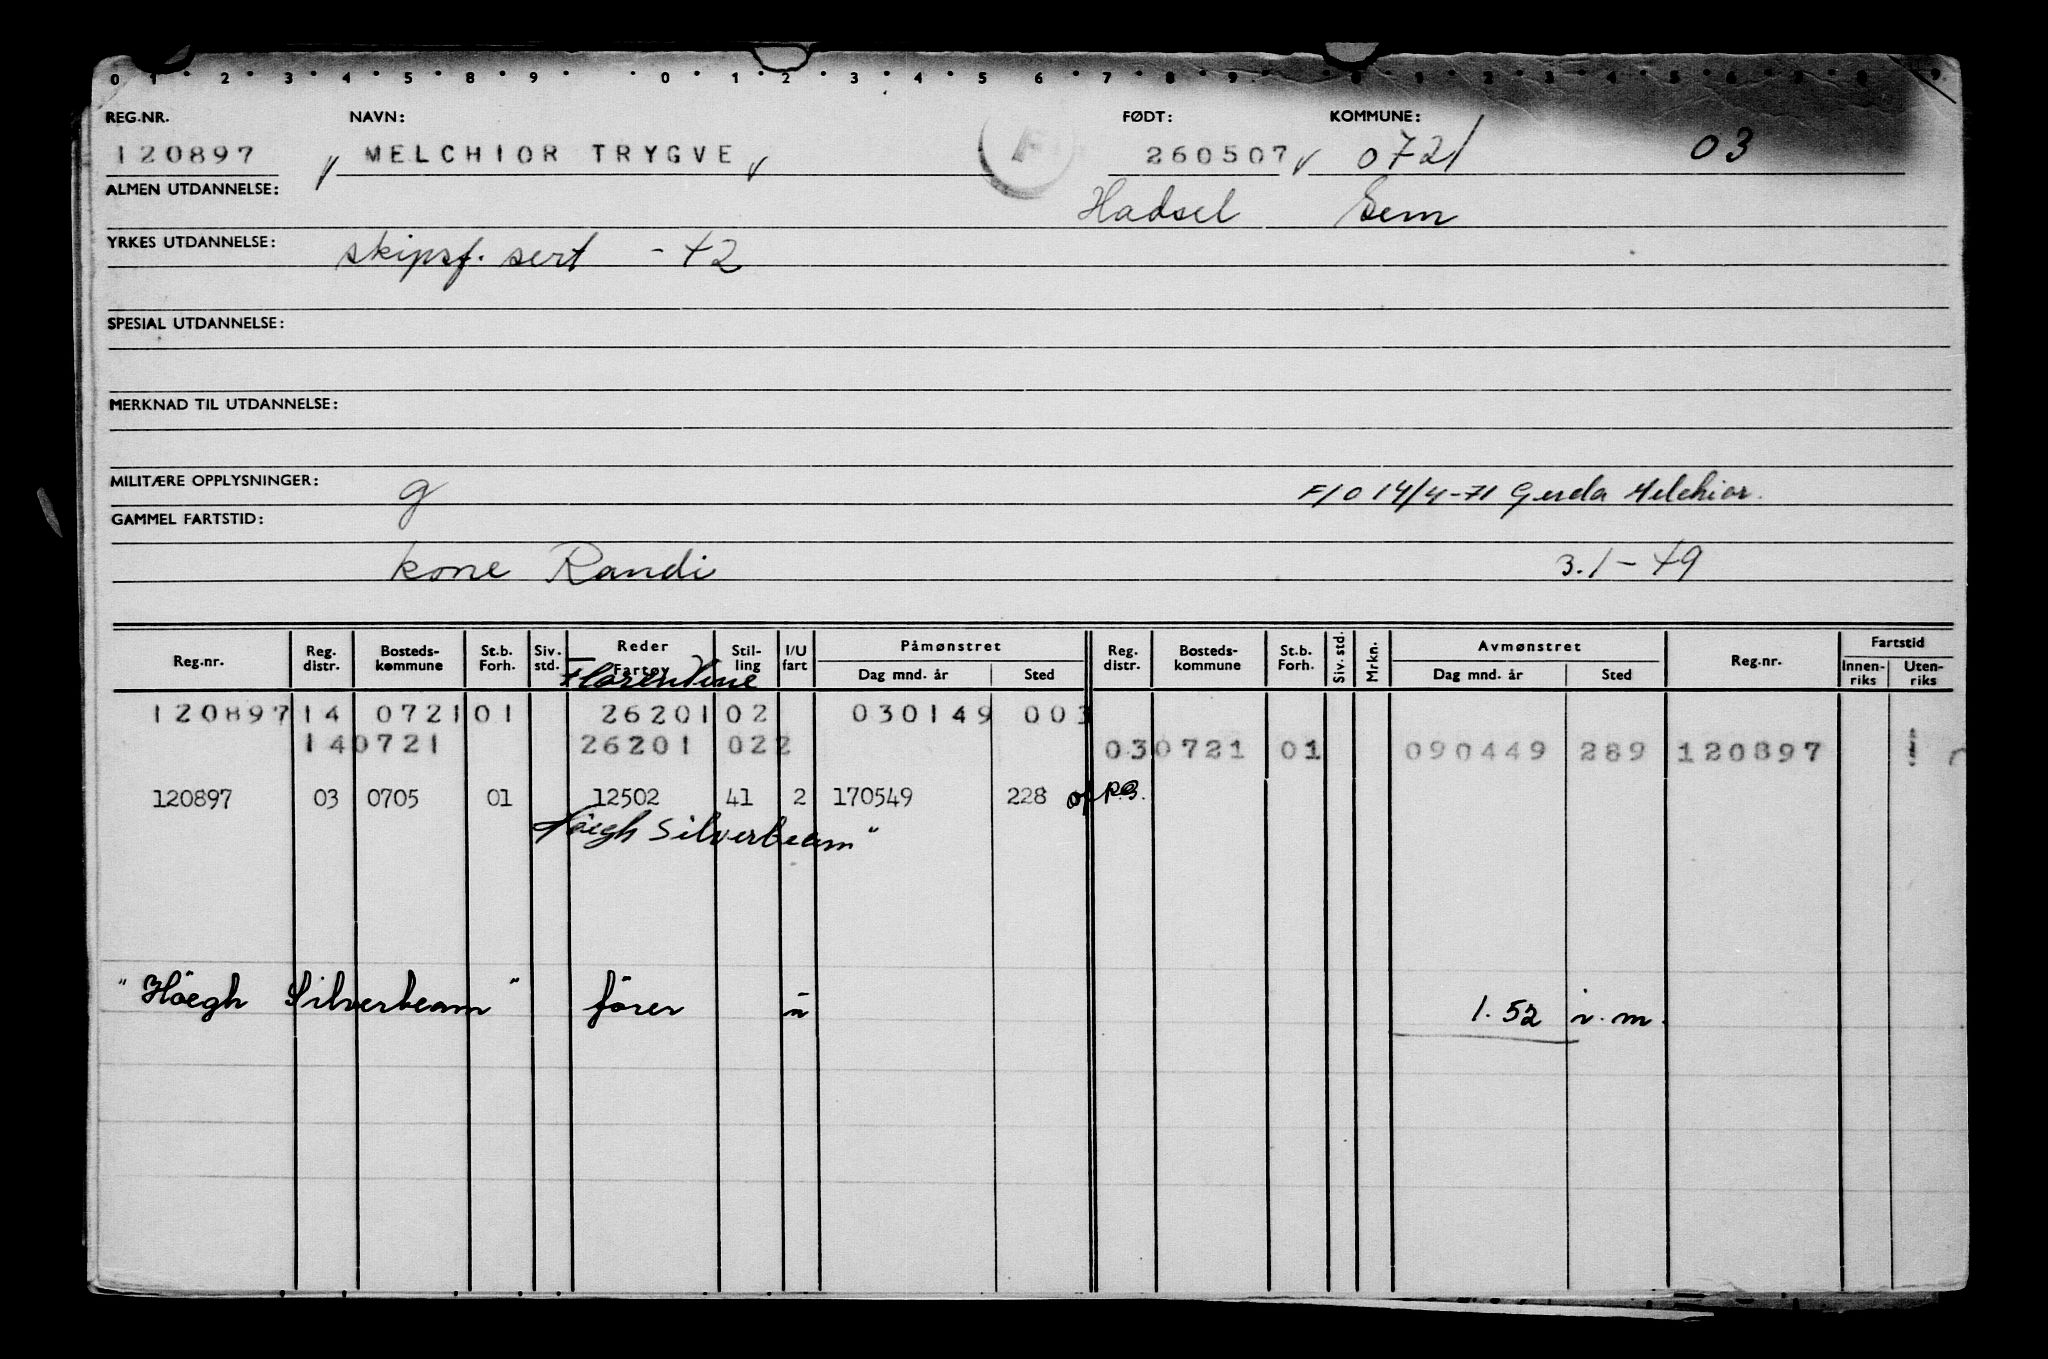 0 1 2 3 4 5 6 7 8 9 0 1 2 3 4 5 6 7 8 9 0 1 2 3 4 5 6 7 8 9
REG.NR. NAVN: FØDT: KOMMUNE:
120897 MELCHIOR TRYGVE F 260507 0721 03
ALMEN UTDANNELSE: Hadsel Sem
YRKES UTDANNELSE: skipsf. sert - 42
SPESIAL UTDANNELSE:
MERKNAD TIL UTDANNELSE:
MILITÆRE OPPLYSNINGER: g F/O 14/4-71 Gerda Melchior.
GAMMEL FARTSTID:
kone Randi 3.1-49
Reg.nr. Reg. distr. Bosteds-kommune St.b. Forh. Siv. std. Reder Fartøy Stil-ling I/U fart Påmønstret Dag mnd. år Sted Reg. distr. Bosteds-kommune St.b. Forh. Siv. std. Mrkn. Avmønstret Dag mnd. år Sted Reg.nr. Fartstid Innen-riks Uten-riks
Florentine
120897 14 0721 01 26201 02 030149 003
14 0721 26201 022 03 0721 01 090449 289 120897
120897 03 0705 01 12502 41 2 170549 228
Höegh Silverbeam"
"Höegh Silverbeam" fører u 1.52 i.m.